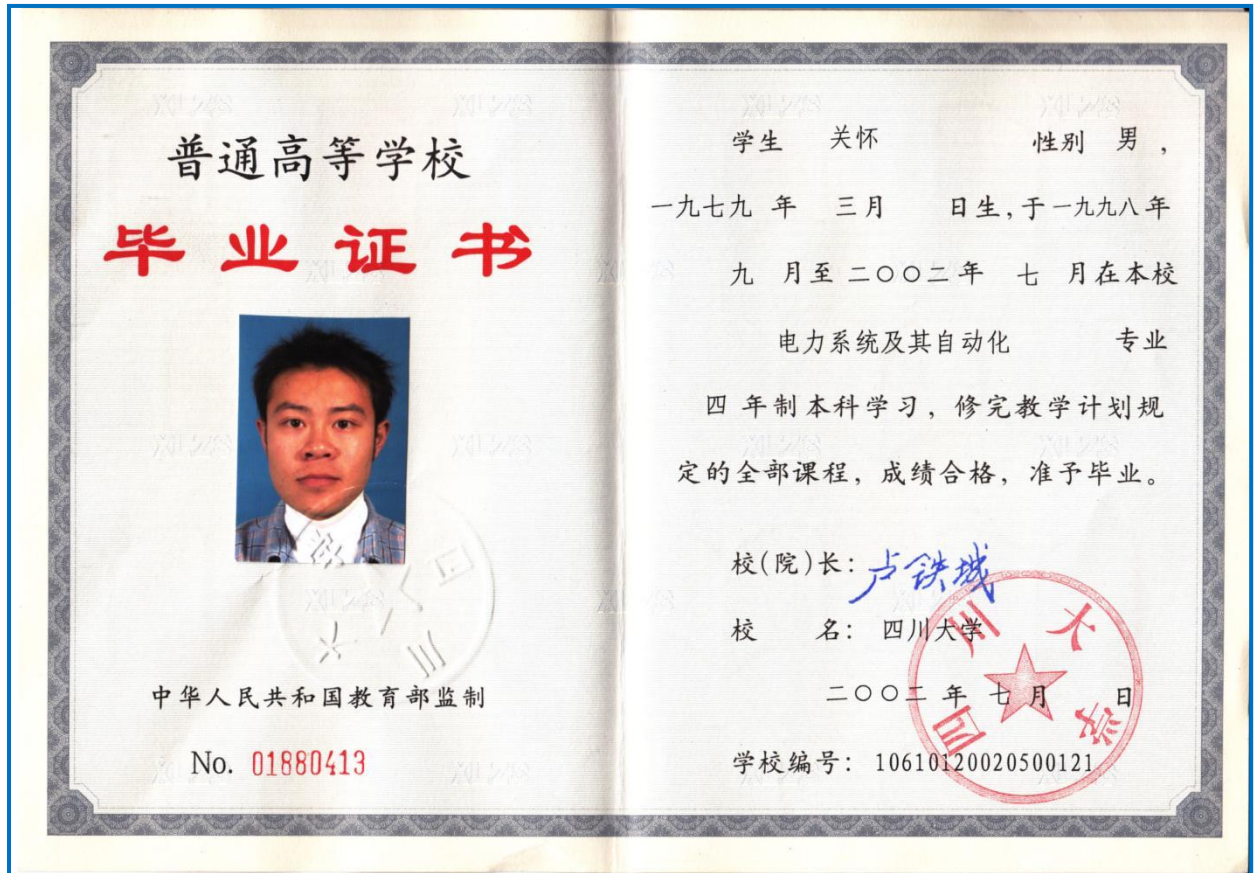 普通高等学校
毕业证书
中华人民共和国教育部监制
No. 01880413
学生 关怀 性别 男，
一九七九 年 三月 日生，于一九九八年
九 月至二〇〇二年 七 月在本校
电力系统及其自动化 专业
四 年制本科学习，修完教学计划规
定的全部课程，成绩合格，准予毕业。
校(院)长：卢铁城
校 名：四川大学
二〇〇二 年 七 月 日
学校编号：10610120020500121
四川大学